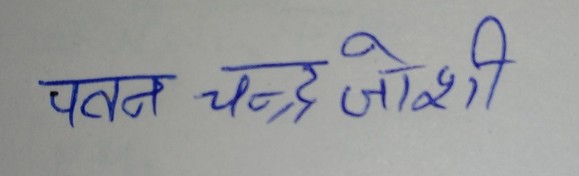 पतन चन्द्र जोशी